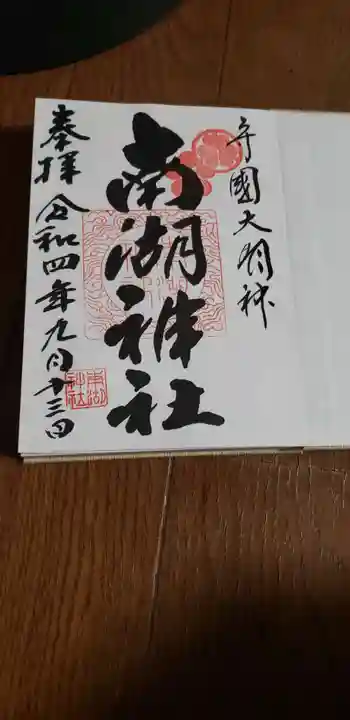 守國大明神
南湖神社
奉拝 令和四年九月十三日
南湖神社